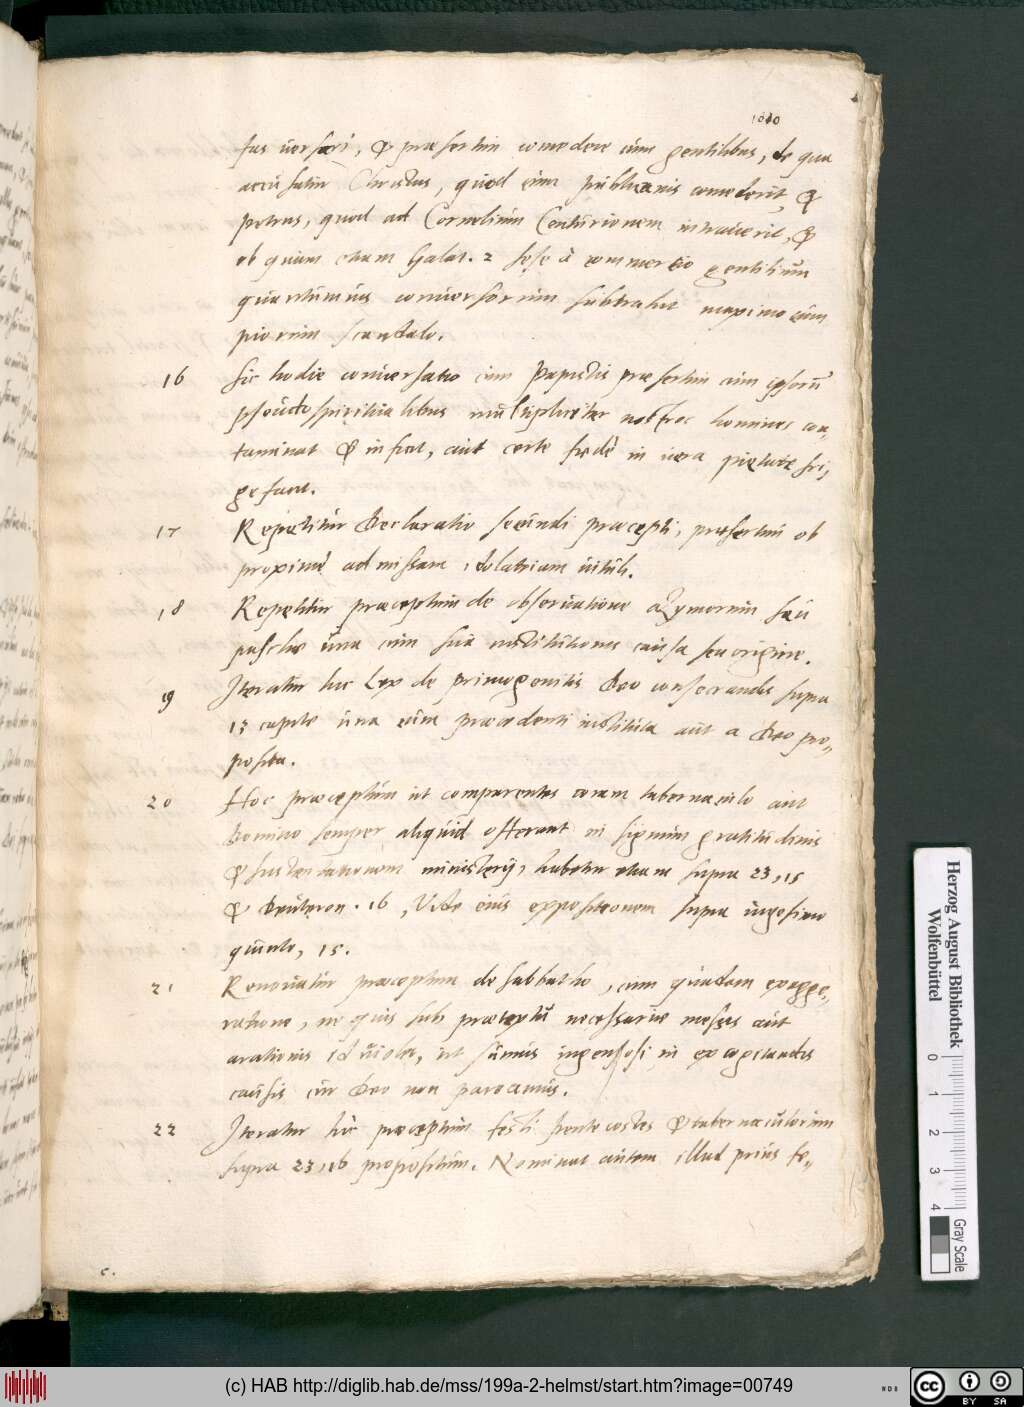 1010
fas versari, & praesertim comedere cum gentilibus, de qua
accusatur Christus, quod cum publicanis comederit, &
petrus, quod ad Cornelium Centurionem intraverit, &
ob quam etiam Galat. 2 sese à commertio gentilium
quantumvis conversorum subtrahit maximo cum
piorum scandalo.
16 Sic hodie conversatio cum Papistis praesertim cum ipsorũ
pseudospiritualibus multipliciter nostros homines con„
taminat & inficit, aut certe fœdè in vera pietate fri„
gefacit.
17 Repetitur Declaratio secundi praecepti, praesertim ob
proximè admissam idolatriam vituli.
18 Repetitur praeceptum de observatione azymorum seu
paschae una cum sua institutionis causa seu origine.
19 Iteratur hic Lex de primogenitis Deo consecrandis supra
13 capite una cum praecedenti instituta aut a Deo pro„
posita.
20 Hoc praeceptum ut comparentes coram tabernaculo aut
Domino semper aliquid offerant in signum gratitudinis
& sustentationem ministerij, habetur etiam supra 23, 15
& Deuteron. 16, Vide eius expositionem supra vigesimo
quinto, 15.
21 Renovatur praeceptum de sabbatho, cum quadam exagge„
ratione, ne quis sub praetextu necessariae messis aut
arationis id violet, ut sumus ingeniosi in excogitandis
causis cur Deo non pareamus.
22 Iteratur hic praeceptum festi pentecostes & tabernaculorum
supra 23, 16 propositum. Nominat autem illud prius fe„
c.
Herzog August Bibliothek
Wolfenbüttel
0 1 2 3 4
Gray Scale
(c) HAB http://diglib.hab.de/mss/199a-2-helmst/start.htm?image=00749
cc BY SA